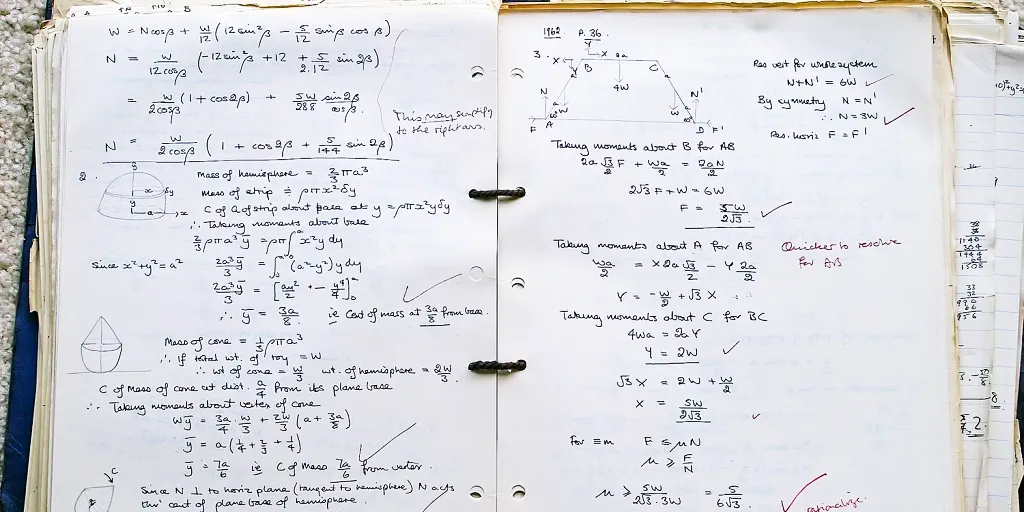 W = N cos β + W/12 (12 sin²β − 5/12 sin β cos β)
N = W/12cosβ (−12 sin²β + 12 + 5/2.12 sin 2β)
= W/2cosβ (1 + cos 2β) + 5W/288 sin 2β/cosβ.
This may simplify
to the right ans.
N = W/2cosβ (1 + cos 2β + 5/144 sin 2β)
2.
y
x
δy
y
a
x
Mass of hemisphere = 2/3 πa³
mass of strip ≡ ρπx²δy
C of G of strip about base at y = ρπx²yδy
∴ Taking moments about base
2/3 ρπa³ȳ = ρπ∫₀ᵃ x²y dy
Since x²+y²=a² 2a³ȳ/3 = ∫₀ᵃ (a²−y²)y dy
2a³ȳ/3 = [ay²/2 + − y⁴/4]₀ᵃ
∴ ȳ = 3a/8. ie Cent of mass at 3a/8 from base.
Mass of cone = 1/3 ρπa³
∴ if total wt. of toy = W
∴ wt of cone = W/3 wt. of hemisphere = 2W/3.
C of Mass of cone at dist. a/4 from its plane base
∴ Taking moments about vertex of cone
Wȳ = 3a/4 . W/3 + 2W/3 (a + 3a/8)
ȳ = a(1/4 + 2/3 + 1/4)
ȳ = 7a/6 ie C of mass 7a/6 from vertex.
C
Since N ⊥ to horiz plane (tangent to hemisphere) N acts
thro' cent of plane base of hemisphere.
1962 A. 36
3.
Y
X
X
2a
B
C
4W
N
N'
W
W
a
a
F
A
D
F'
Res vert for whole system
N+N' = 6W
By symmetry N = N'
∴ N = 3W
Res. horiz F = F'
Taking moments about B for AB
2a√3/2 F + Wa/2 = 2aN/2
2√3 F + W = 6W
F = 5W/2√3.
Taking moments about A for AB
Quicker to resolve
for AB
Wa/2 = X2a√3/2 − Y 2a/2
Y = −W/2 + √3 X
Taking moments about C for BC
4Wa = 2aY
Y = 2W
√3 X = 2W + W/2
X = 5W/2√3
For ≡m F ≤ μN
μ ≥ F/N
μ ≥ 5W/2√3.3W = 5/6√3
rationalize.